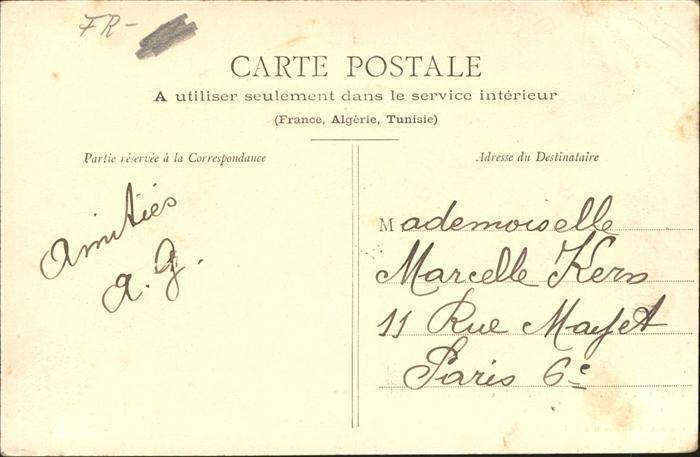 FR-
CARTE POSTALE
A utiliser seulement dans le service intérieur
(France, Algérie, Tunisie)
Partie réservée à la Correspondance
Adresse du Destinataire
Amitiés
A. G.
Mademoiselle
Marcelle Kern
11 Rue Mayet
Paris 6e